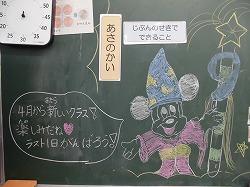 あさのかい
じぶんのせきで
できること
4月から新しいクラス!
楽しみだね
ラスト1日がんばろう!